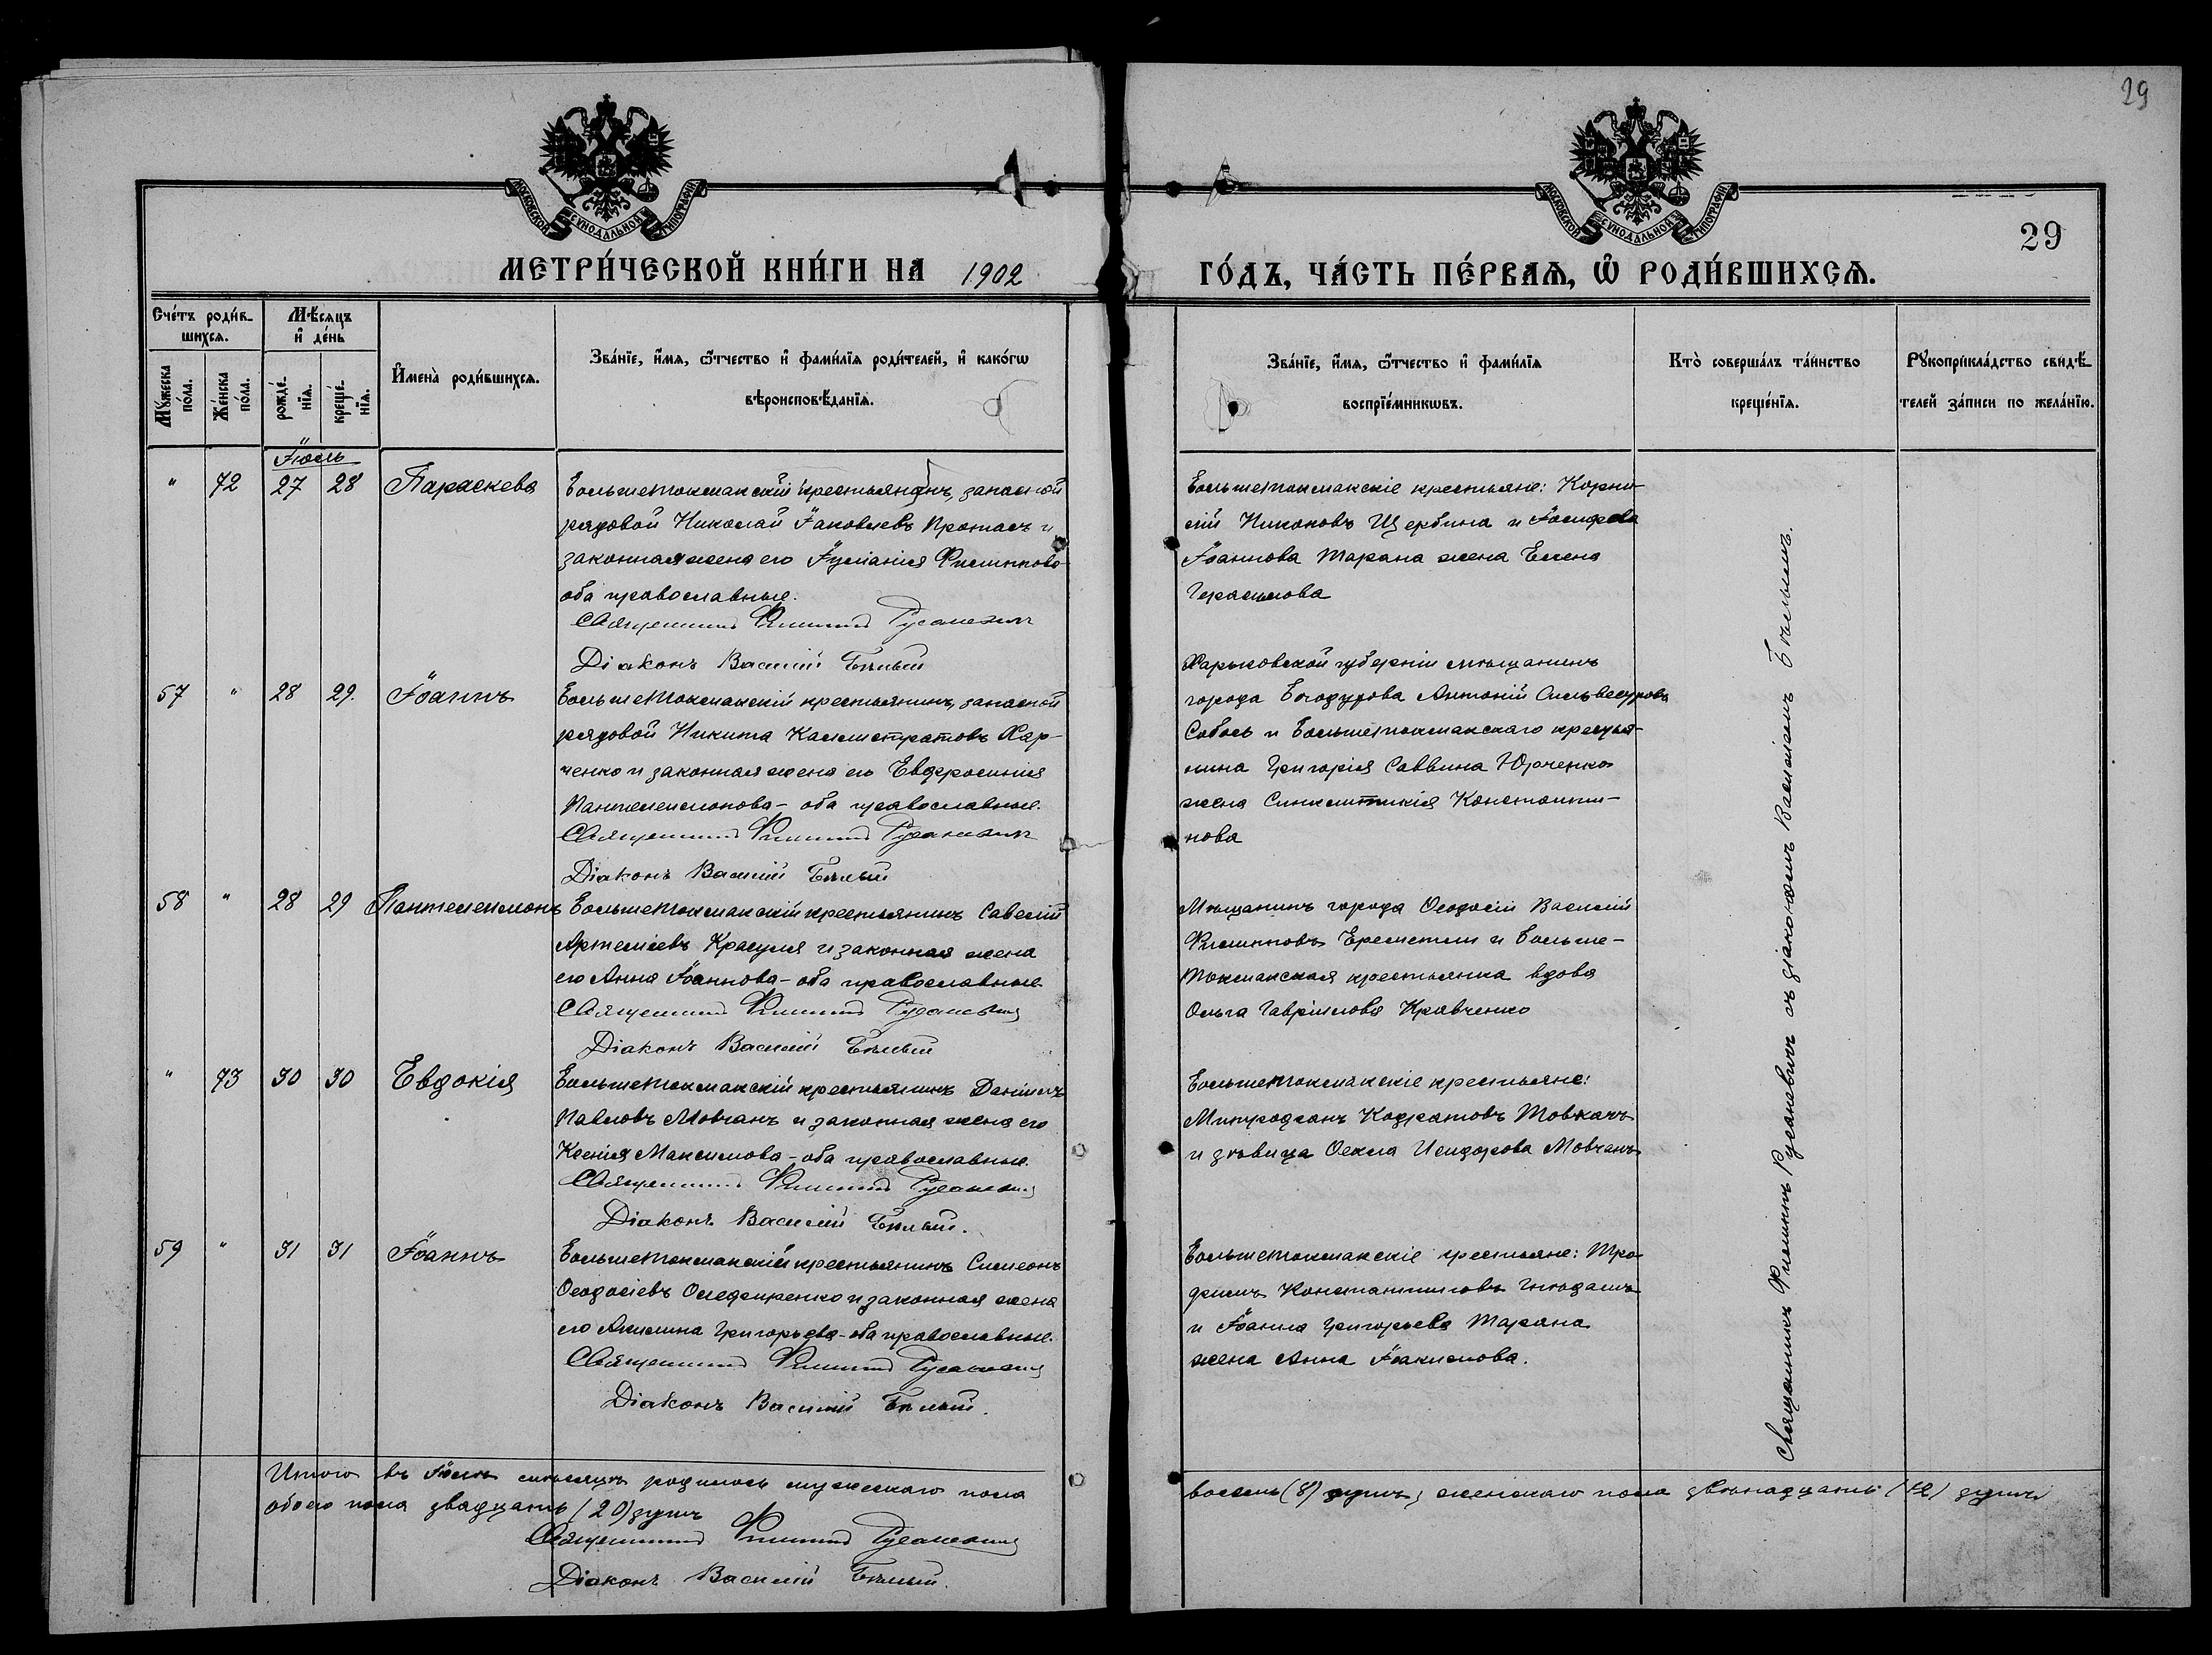 29
МОСКОВСКОЙ СѴНОДАЛЬНОЙ ТИПОГРАФІИ
МОСКОВСКОЙ СѴНОДАЛЬНОЙ ТИПОГРАФІИ
29
МЕТРИ́ЧЕСКОЙ КНИ́ГИ НА 1902
ГО́ДЪ, ЧА́СТЬ ПЕ́РВАѦ, Ѡ҆ РОДИ́ВШИХСѦ.
Сче́тъ роди́в-
шихсѧ.
Мꙋ́жеска по́ла.
Же́нска по́ла.
Мѣ́сѧцъ и҆ де́нь
рожде́-
нїѧ.
креще́-
нїѧ.
И҆мена̀ роди́вшихсѧ.
Зва́нїе, и҆́мѧ, ѻ҆́тчество и҆ фами́лїѧ роди́телей, и҆ како́гѡ
вѣроисповѣ́данїѧ.
Зва́нїе, и҆́мѧ, ѻ҆́тчество и҆ фами́лїѧ
воспрїе́мникѡвъ.
Кто̀ соверша́лъ та́инство
креще́нїѧ.
Рꙋкоприкла́дство свидѣ́-
телей за́писи по жела́нїю.
Іюль
" 72 27 28 Параскева
Большетокмакскій крестьянинъ, запасной
рядовой Николай Іаковлевъ Протасъ и
законная жена его Іуліанія Филиппова
оба православные.
Священникъ Филиппъ Русаневичъ
Діаконъ Василій Бѣлый
Большетокмакскіе крестьяне: Корни-
лій Никоновъ Щербина и Іосифа
Іоаннова Тарана жена Елена
Герасимова
57 " 28 29. Іоаннъ
Большетокмакскій крестьянинъ, запасной
рядовой Никита Каллистратовъ Хар-
ченко и законная жена его Евфросинія
Пантелеимонова - оба православные.
Священникъ Филиппъ Русаневичъ
Діаконъ Василій Бѣлый
Харьковской губерніи мѣщанинъ
города Богодухова Антоній Сильвестровъ
Соболь и Большетокмакскаго крестья-
нина Григорія Саввина Юрченко
жена Синклитикія Константи-
нова
58 " 28 29 Пантелеимонъ
Большетокмакскій крестьянинъ Савелій
Артеміевъ Красуля и законная жена
его Анна Іоаннова - оба православные.
Священникъ Филиппъ Русаневичъ
Діаконъ Василій Бѣлый
Мѣщанинъ города Ѳеодосіи Василій
Филипповъ и Больше-
токмакская крестьянка вдова
Ольга Гавріилова Кравченко
" 73 30 30 Евдокія
Большетокмакскій крестьянинъ Даніилъ
Павловъ Мовчанъ и законная жена его
Ксенія Максимова - оба православные.
Священникъ Филиппъ Русаневичъ
Діаконъ Василій Бѣлый.
Большетокмакскіе крестьяне:
Митрофанъ Кодратовъ Товкачъ
и дѣвица Ѳекла Исидорова Мовчанъ
59 " 31 31 Іоаннъ
Большетокмакскій крестьянинъ Симеонъ
Ѳеодосіевъ и законная жена
его Акилина Григорьева - оба православные.
Священникъ Филиппъ Русаневичъ
Діаконъ Василій Бѣлый.
Большетокмакскіе крестьяне: Тро-
фимъ Константиновъ
и Іоанна Григорьева Тарана
жена Анна Іоакимова.
Священникъ Филиппъ Русаневичъ съ діакономъ Василіемъ Бѣлымъ.
Итого въ Іюлѣ мѣсяцѣ родилось мужескаго пола
восемь (8) душъ; женскаго пола двѣнадцать (12) душъ
обоего пола двадцать (20) душъ
Священникъ Филиппъ Русаневичъ
Діаконъ Василій Бѣлый.